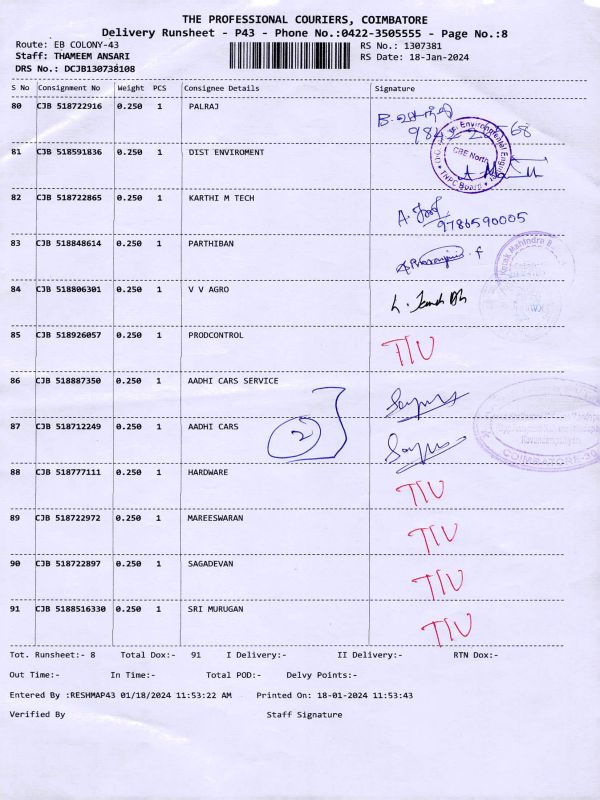 THE PROFESSIONAL COURIERS, COIMBATORE
Delivery Runsheet - P43 - Phone No.:0422-3505555 - Page No.:8
Route: EB COLONY-43 RS No.: 1307381
Staff: THAMEEM ANSARI RS Date: 18-Jan-2024
DRS No.: DCJB130738108
S No Consignment No Weight PCS Consignee Details Signature
80 CJB 518722916 0.250 1 PALRAJ
81 CJB 518591836 0.250 1 DIST ENVIROMENT
CBE North
TNPC Board
82 CJB 518722865 0.250 1 KARTHI M TECH
9786590005
83 CJB 518848614 0.250 1 PARTHIBAN
Kotak Mahindra B
84 CJB 518806301 0.250 1 V V AGRO
85 CJB 518926057 0.250 1 PRODCONTROL TIU
86 CJB 518887350 0.250 1 AADHI CARS SERVICE
87 CJB 518712249 0.250 1 AADHI CARS
2
Kavundampalayam
COIMBATORE-30
88 CJB 518777111 0.250 1 HARDWARE TIU
89 CJB 518722972 0.250 1 MAREESWARAN TIU
90 CJB 518722897 0.250 1 SAGADEVAN TIU
91 CJB 5188516330 0.250 1 SRI MURUGAN TIU
Tot. Runsheet:- 8 Total Dox:- 91 I Delivery:- II Delivery:- RTN Dox:-
Out Time:- In Time:- Total POD:- Delvy Points:-
Entered By :RESHMAP43 01/18/2024 11:53:22 AM Printed On: 18-01-2024 11:53:43
Verified By Staff Signature